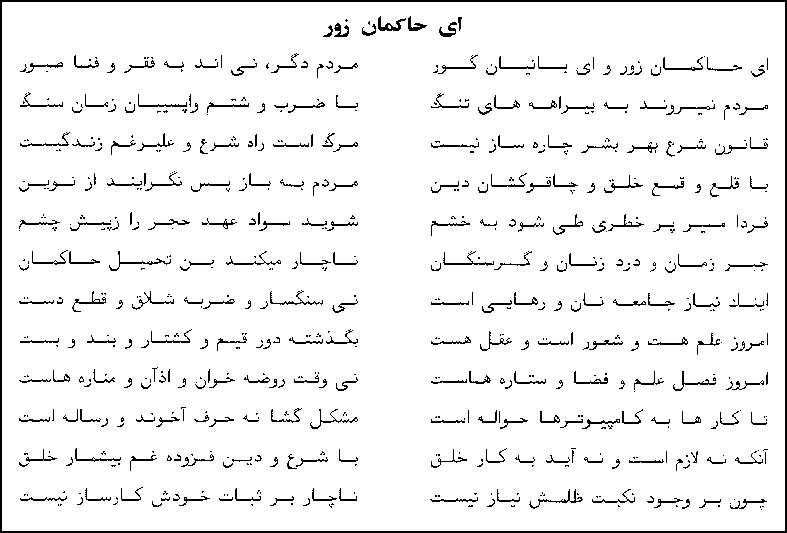 ای حاکمان زور
ای حاکمان زور و ای بانیان گور مردم دگر، نی اند به فقر و فنا صبور
مردم نمیروند به بیراهه های تنگ با ضرب و شتم واپسییان زمان سنگ
قانون شرع بهر بشر چاره ساز نیست مرگ است راه شرع و علیرغم زندگیست
با قلع و قمع خلق و چاقوکشان دین مردم به باز پس نگرایند از نوین
فردا میر پر خطری طی شود به خشم شوید سواد عهد حجر را زپیش چشم
جبر زمان و درد زنان و گرسنگان ناچار میکند بن تحمیل حاکمان
ایناد نیاز جامعه نان و رهایی است نی سنگسار و ضربه شلاق و قطع دست
امروز علم هست و شعور است و عقل هست بگذشته دور قیم و کشتار و بند و بست
امروز فصل علم و فضا و ستاره هاست نی وقت روضه خوان و اذآن و مناره هاست
تا کار ها به کامپیوترها حواله است مشکل گشا نه حرف آخوند و رساله است
آنکه نه لازم است و نه آید به کار خلق با شرع و دین فزوده غم بیشمار خلق
چون بر وجود نکبت ظلمش نیاز نیست ناچار بر ثبات خودش کارساز نیست